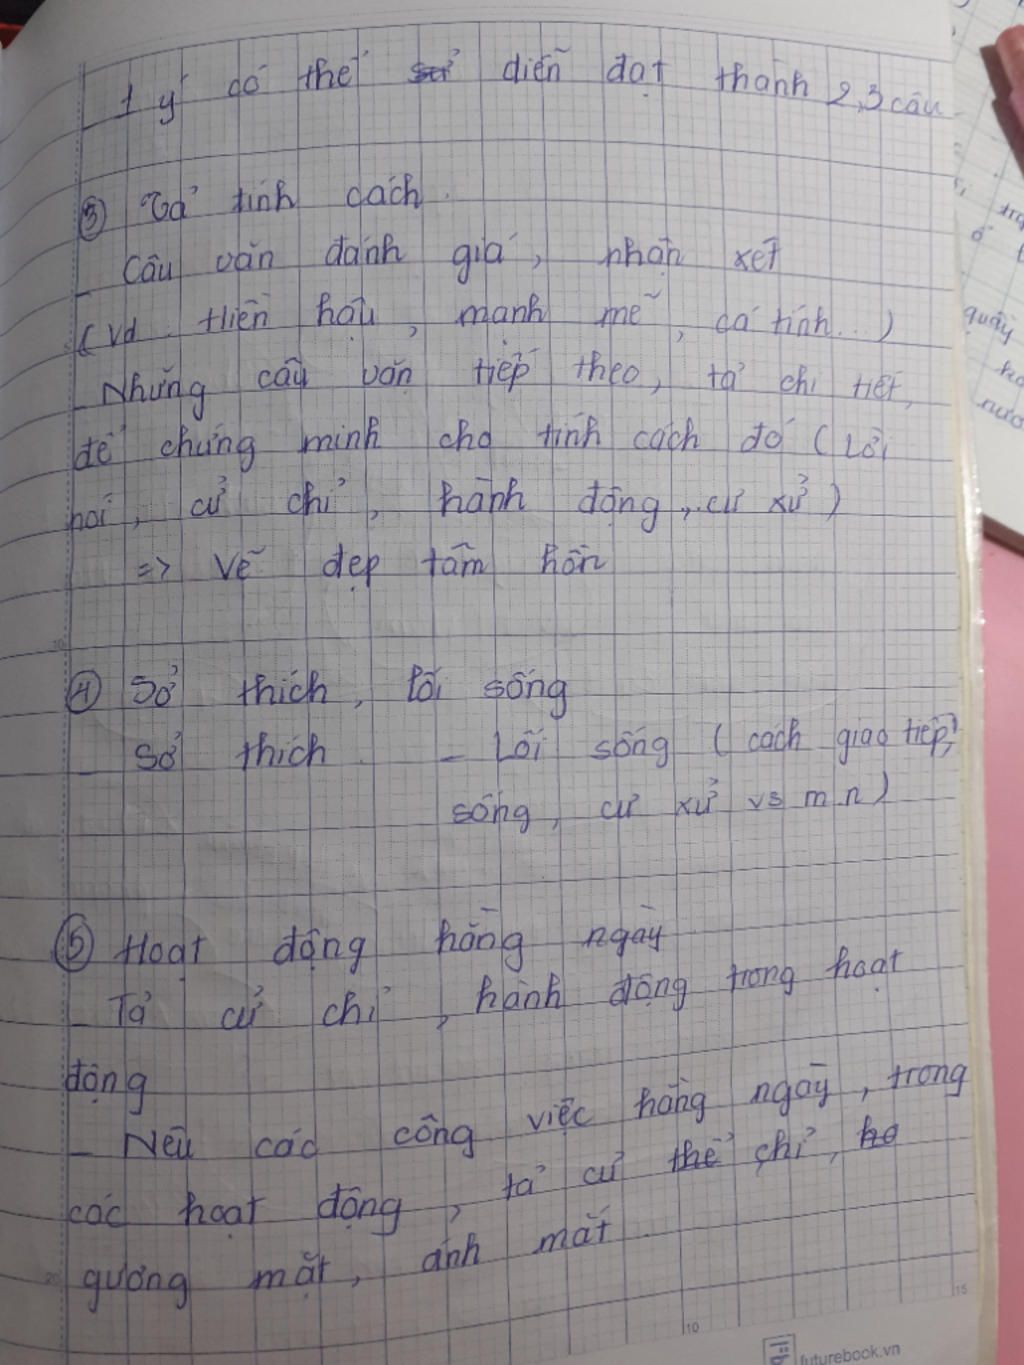 1 ý có thể sử diễn đạt thành 2,3 câu
③ Tả tính cách.
_ Câu văn đánh giá, nhận xét
(Vd. Hiền hậu, mạnh mẽ, cá tính...)
_ Những câu văn tiếp theo, tả chi tiết,
để chứng minh cho tính cách đó (Lời
nói, cử chỉ, hành động, cư xử)
=> Vẻ đẹp tâm hồn
④ Sở thích, lối sống
_ Sở thích _ Lối sống (cách giao tiếp,
sống, cư xử vs m.n)
⑤ Hoạt động hằng ngày
_ Tả cử chỉ, hành động trong hoạt
động
_ Nêu các công việc hằng ngày, trong
các hoạt động, tả cử thể chỉ, ho
gương mặt, ánh mắt
20
10
15
futurebook.vn
quầy